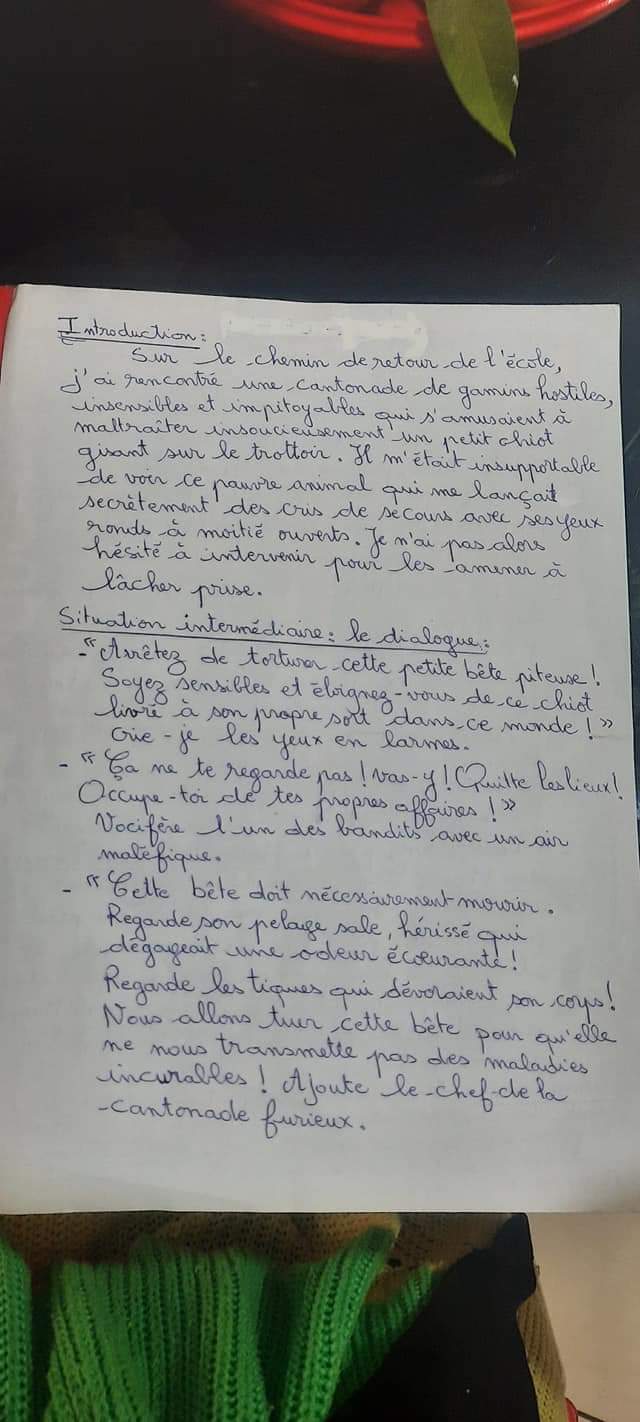 Introduction :
Sur le chemin de retour de l'école,
j'ai rencontré une cantonade de gamins hostiles,
insensibles et impitoyables qui s'amusaient à
maltraîter insoucieusement un petit chiot
gisant sur le trottoir. Il m'était insupportable
de voir ce pauvre animal qui me lançait
secrètement des cris de secours avec ses yeux
ronds à moitié ouverts. Je n'ai pas alors
hésité à intervenir pour les amener à
lâcher prise.
Situation intermédiaire : le dialogue :
- "Arrêtez de torturer cette petite bête piteuse !
Soyez sensibles et éloignez-vous de ce chiot
livré à son propre sort dans ce monde ! »
Crie-je les yeux en larmes.
- " Ça ne te regarde pas ! Vas-y ! Quitte les lieux !
Occupe-toi de tes propres affaires ! »
Vocifère l'un des bandits avec un air
maléfique.
- " Cette bête doit nécessairement mourir.
Regarde son pelage sale, hérissé qui
dégageait une odeur écœurante !
Regarde les tiques qui dévoraient son corps !
Nous allons tuer cette bête pour qu'elle
ne nous transmette pas des maladies
incurables ! Ajoute le chef de la
cantonade furieux.